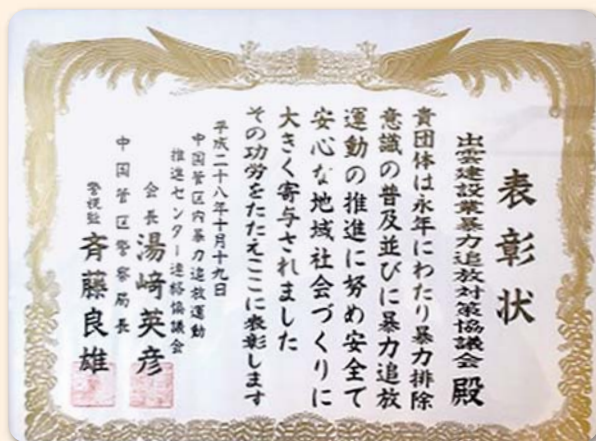 表彰状
出雲建設業暴力追放対策協議会 殿
貴団体は永年にわたり暴力排除
意識の普及並びに暴力追放
運動の推進に努め安全で
安心な地域社会づくりに
大きく寄与されました
その功労をたたえここに表彰します
平成二十八年十月十九日
中国管区内暴力追放運動
推進センター連絡協議会
会長 湯﨑英彦
中国管区警察局長
警視監 斉藤良雄